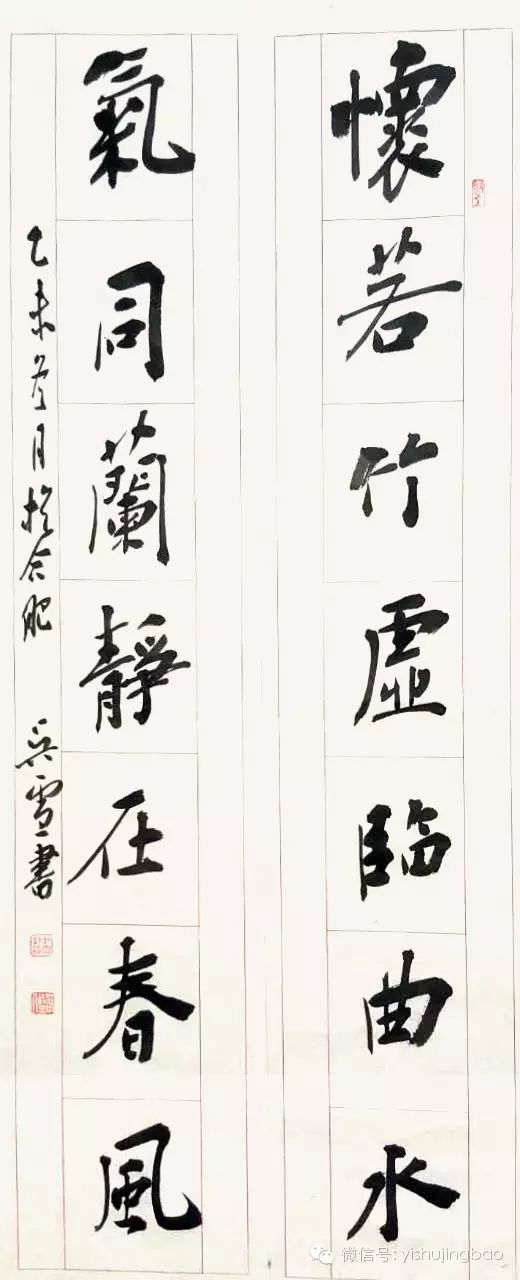 懷若竹虛臨曲水
氣同蘭靜在春風
乙未冬月於合肥 吴雪書
微信号: yishujingbao